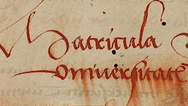 Matricula
Vniversitatis